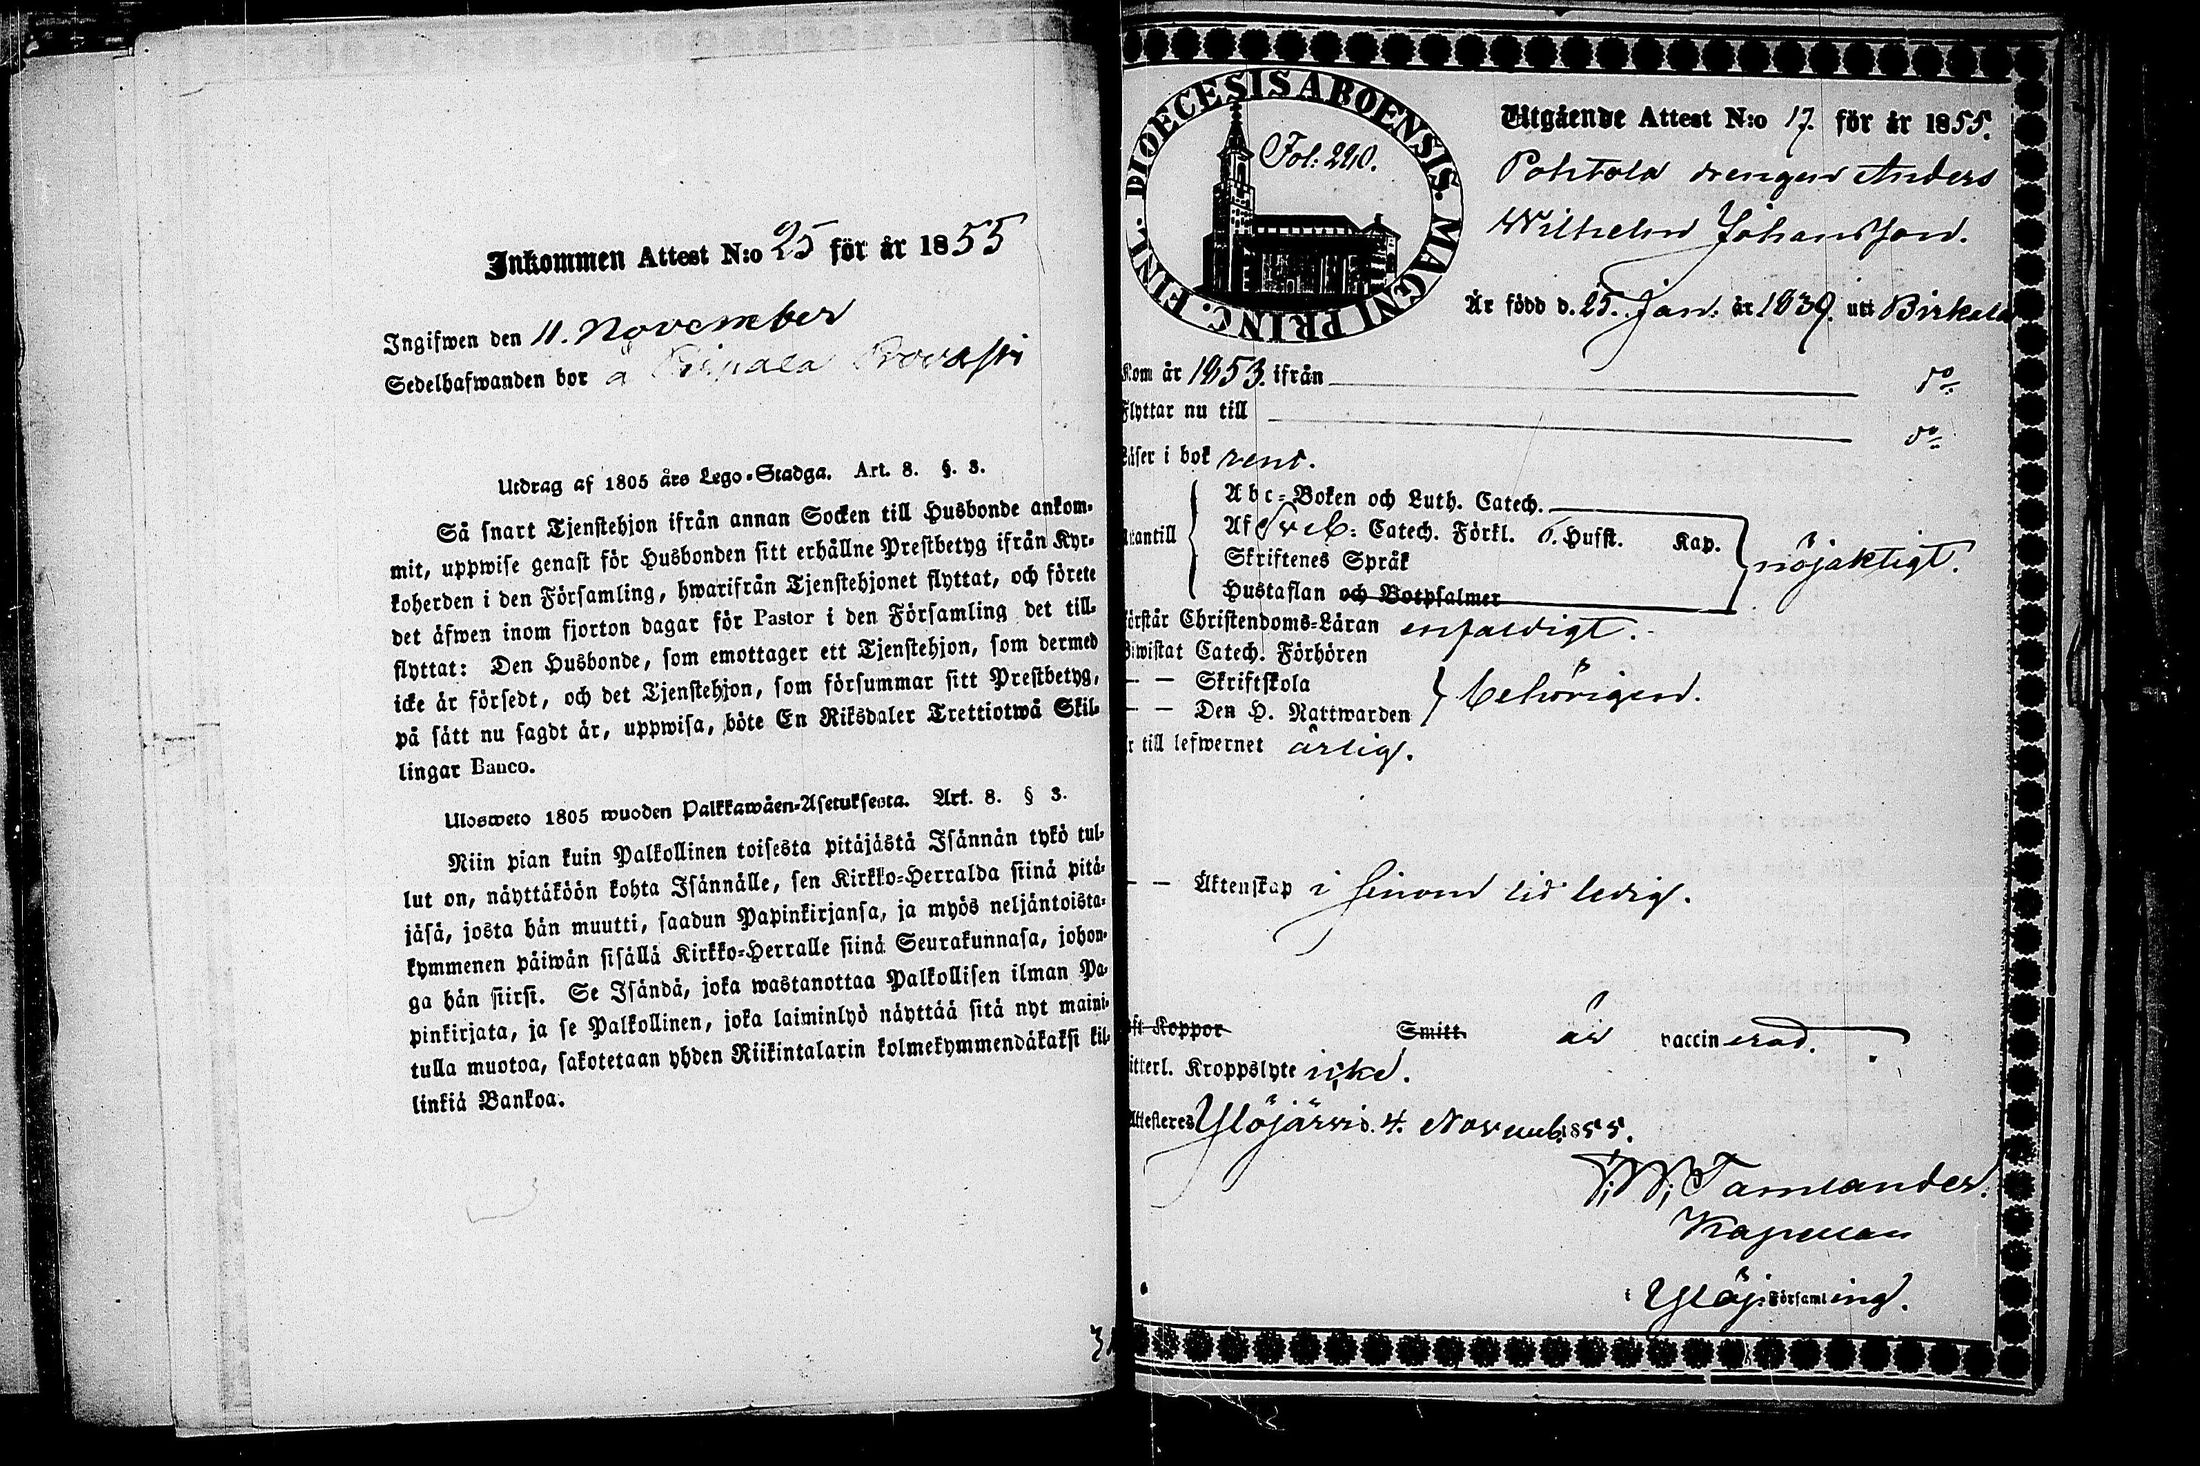 Inkommen Attest N:o 25 för år 1855
Ingifwen den 11. November
Sedelhafwanden bor å
Utdrag af 1805 års Lego-Stadga. Art. 8. §. 3.
Så snart Tjenstehjon ifrån annan Socken till Husbonde ankom-
mit, uppwise genast för Husbonden sitt erhållne Prestbetyg ifrån Kyr-
koherden i den Församling, hwarifrån Tjenstehjonet flyttat, och förete
det äfwen inom fjorton dagar för Pastor i den Församling det till-
flyttat: Den Husbonde, som emottager ett Tjenstehjon, som dermed
icke är försedt, och det Tjenstehjon, som försummar sitt Prestbetyg,
på sätt nu sagdt är, uppwisa, böte En Riksdaler Trettiotwå Skil-
lingar Banco.
Ulosweto 1805 wuoden Palkkawäen-Asetuksesta. Art. 8. § 3.
Niin pian kuin Palkollinen toisesta pitäjästä Isännän tykö tul-
lut on, näyttäköön kohta Isännälle, sen Kirkko-Herralda siinä pitä-
jäsä, josta hän muutti, saadun Papinkirjansa, ja myös neljäntoista-
kymmenen päiwän sisällä Kirkko-Herralle siinä Seurakunnasa, johon-
ga hän siirsi. Se Isändä, joka wastanottaa Palkollisen ilman Pa-
pinkirjata, ja se Palkollinen, joka laiminlyö näyttää sitä nyt maini-
tulla muotoa, sakotetaan yhden Riikintalarin kolmekymmendäkaksi kil-
linkiä Bankoa.
DIOECESIS ABOENSIS. MAGNI PRINC. FINL.
Fol: 220.
Utgående Attest N:o 17. för år 1855.
Pohtola drengen Anders
Wilhelm Johansson.
Är född d. 25. Jan: år 1839. uti Birkala
Kom år 1853. ifrån do
Flyttar nu till do
Läser i bok rent.
Utantill
Abc-Boken och Luth. Catech.
Af Sveb: Catech. Förkl. 6. Hufst. Kap.
Skriftenes Språk
Hustaflan och Botpsalmer
nöjaktigt.
Förstår Christendoms-Läran enfaldigt.
Biwistat Catech. Förhören
— — Skriftskola
— — Den H. Nattwarden
behörigen.
Är till lefwernet ärlig.
— — Äktenskap i sinom tid ledig.
Haft Koppor Smitt. är vaccinerad.
Ytterl. Kroppslyte icke.
Attesteras Ylöjärvi d. 4. Novemb. 1855.
F. W. Tamlander.
Kapellan
i Ylöj. Församling.